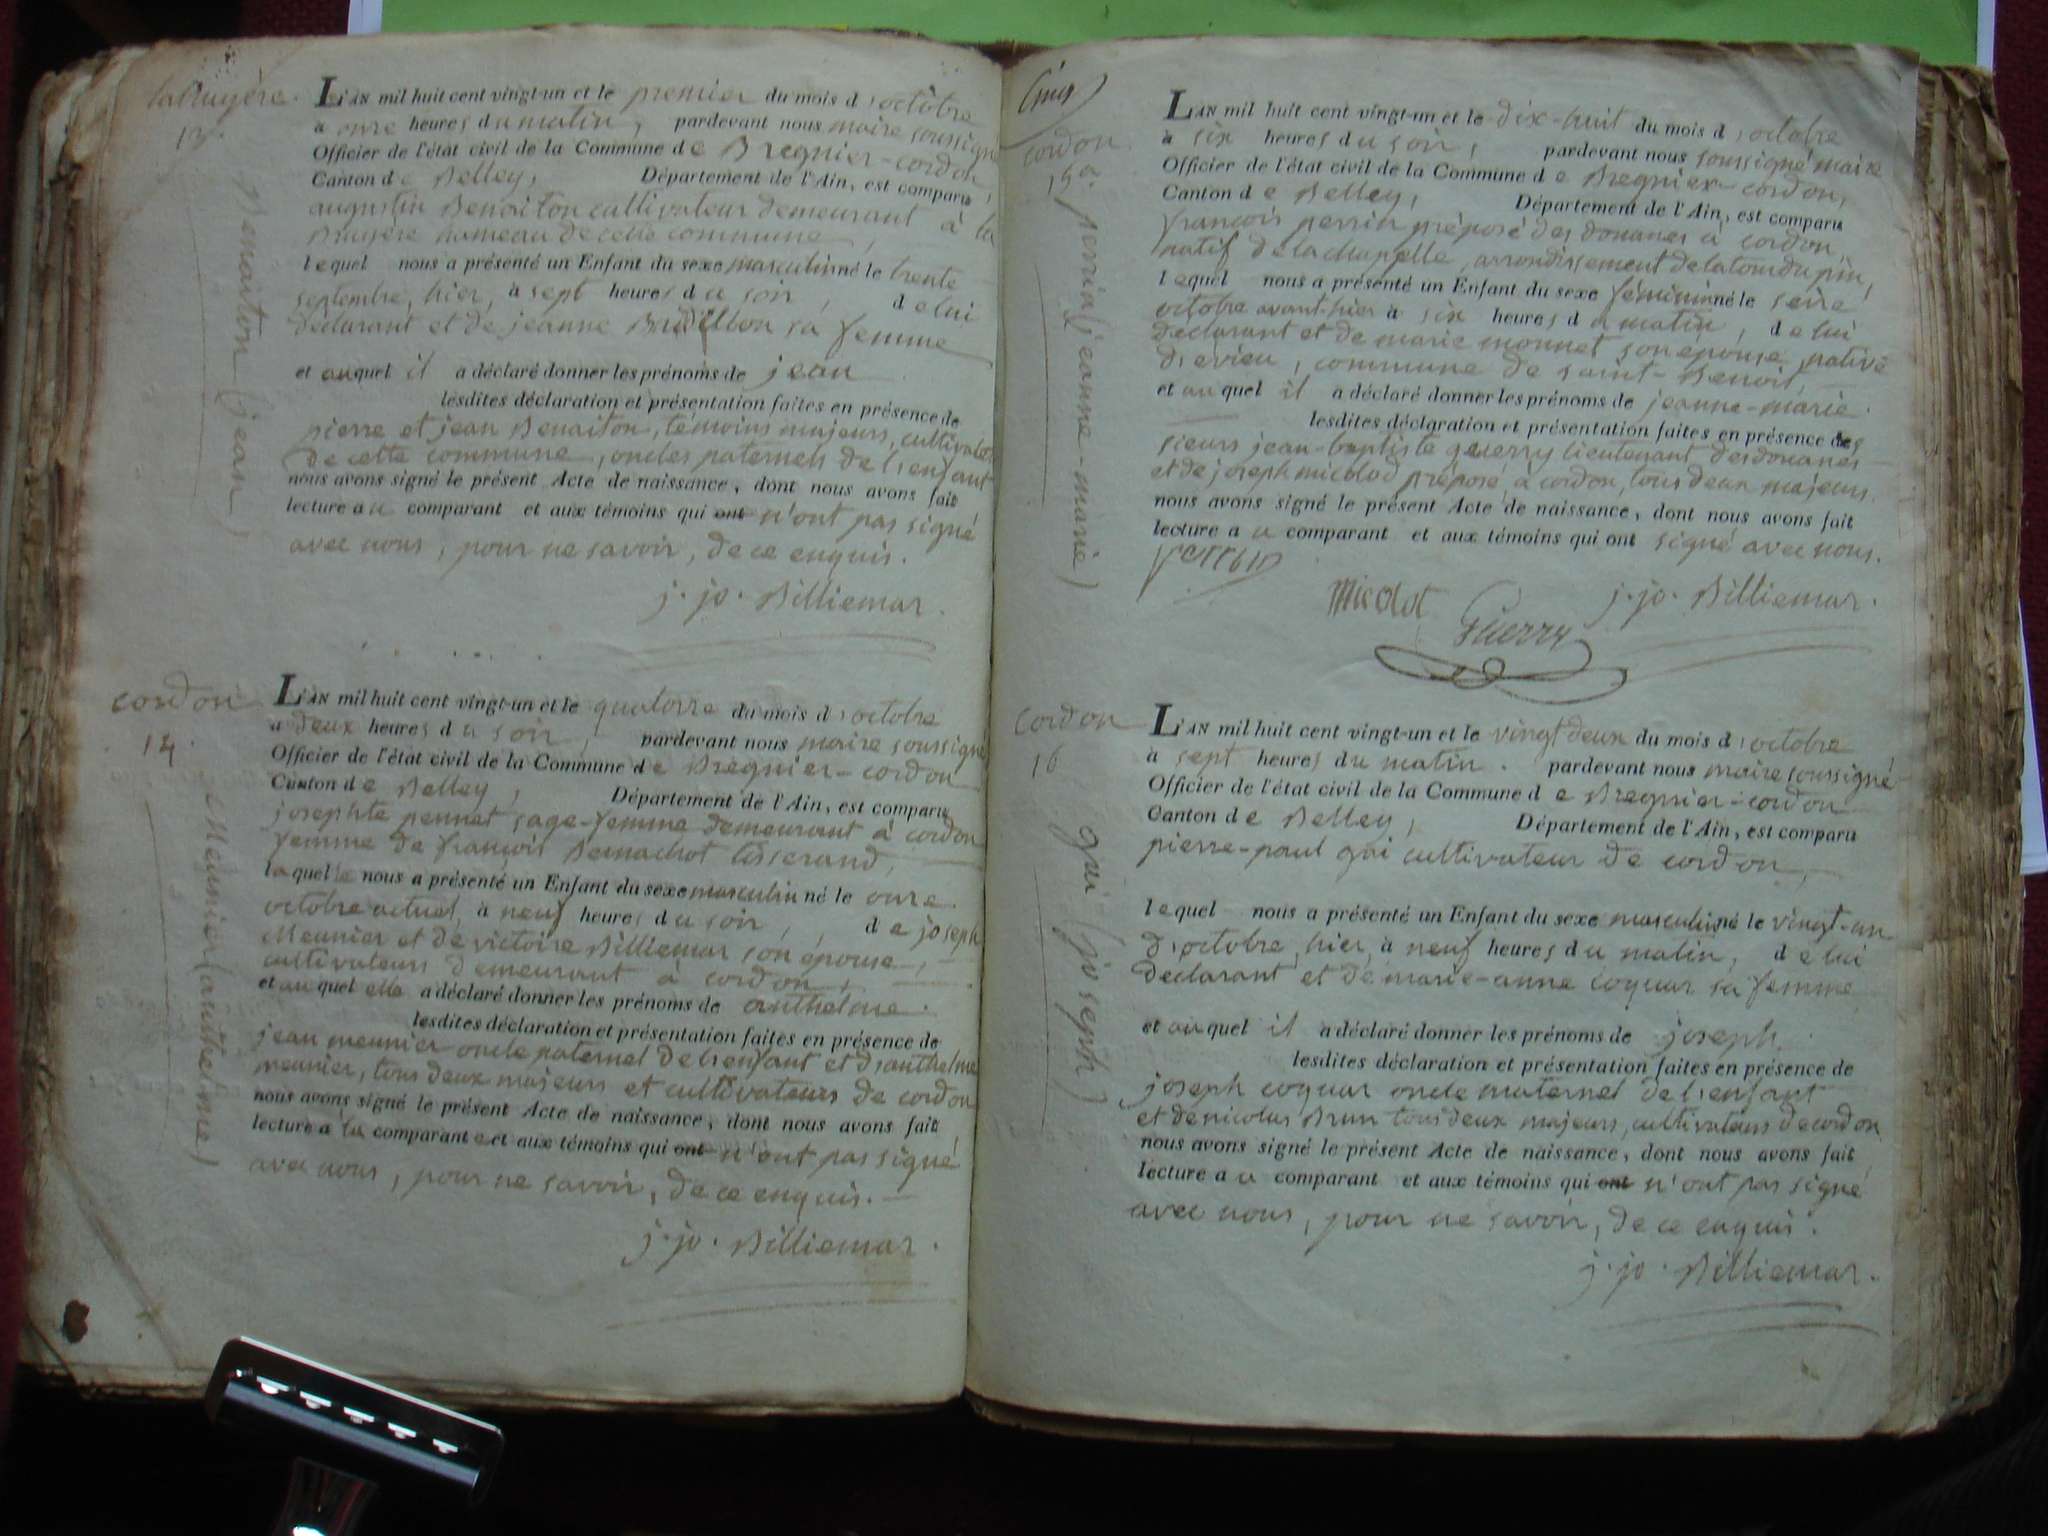 labruyère.
13.
Benaiton (jean)
L'AN mil huit cent vingt-un et le premier du mois d'octobre
à onze heures du matin, pardevant nous maire soussigné
Officier de l'état civil de la Commune de Bregnier-cordon
Canton de Belley, Département de l'Ain, est comparu
augustin Benaiton cultivateur demeurant à la
Bruyère hameau de cette commune,
lequel nous a présenté un Enfant du sexe masculin né le trente
septembre, hier, à sept heures du soir, de lui
déclarant et de jeanne sa femme
et auquel il a déclaré donner les prénoms de jean
lesdites déclaration et présentation faites en présence de
pierre et jean Benaiton, témoins majeurs, cultivateurs
de cette commune, oncles paternels de l'enfant
nous avons signé le présent Acte de naissance, dont nous avons fait
lecture au comparant et aux témoins qui ont n'ont pas signé
avec nous, pour ne savoir, de ce enquis.
j. jo. Billiemar.
cordon
14.
Meunier (anthelme)
L'AN mil huit cent vingt-un et le quatorze du mois d'octobre
à deux heures du soir, pardevant nous maire soussigné
Officier de l'état civil de la Commune de Bregnier-cordon
Canton de Belley, Département de l'Ain, est comparu
josephte pennet sage-femme demeurant à cordon
femme de françois Bernachot tisserand,
laquelle nous a présenté un Enfant du sexe masculin né le onze
octobre actuel, à neuf heures du soir, de joseph
Meunier et de victoire Billiemar son épouse,
cultivateurs demeurant à cordon,
et auquel elle a déclaré donner les prénoms de anthelme.
lesdites déclaration et présentation faites en présence de
jean meunier oncle paternel de l'enfant et d'anthelme
meunier, tous deux majeurs et cultivateurs de cordon
nous avons signé le présent Acte de naissance, dont nous avons fait
lecture à la comparante et aux témoins qui ont n'ont pas signé
avec nous, pour ne savoir, de ce enquis.
j. jo. Billiemar.
Cinq
cordon
15.
perrin (jeanne-marie)
L'AN mil huit cent vingt-un et le dix-huit du mois d'octobre
à six heures du soir, pardevant nous soussigné maire
Officier de l'état civil de la Commune de Bregnier-cordon,
Canton de Belley, Département de l'Ain, est comparu
françois perrin préposé des douanes à cordon,
natif de la chapelle, arrondissement de latourdupin,
lequel nous a présenté un Enfant du sexe féminin né le seize
octobre avant-hier à six heures du matin, de lui
déclarant et de marie monnet son épouse, native
d'evieu, commune de saint-Benoit,
et auquel il a déclaré donner les prénoms de jeanne-marie.
lesdites déclaration et présentation faites en présence des
sieurs jean-baptiste guerry lieutenant des douanes
et de joseph micolod préposé, à cordon, tous deux majeurs.
nous avons signé le présent Acte de naissance, dont nous avons fait
lecture au comparant et aux témoins qui ont signé avec nous.
Perrin
Micolot
Guerry
j. jo. Billiemar.
Cordon
16
gui (joseph)
L'AN mil huit cent vingt-un et le vingt deux du mois d'octobre
à sept heures du matin. pardevant nous maire soussigné
Officier de l'état civil de la Commune de Bregnier-cordon
Canton de Belley, Département de l'Ain, est comparu
pierre-paul gui cultivateur de cordon,
lequel nous a présenté un Enfant du sexe masculin né le vingt-un
d'octobre, hier, à neuf heures du matin, de lui
déclarant et de marie-anne coquar sa femme
et auquel il a déclaré donner les prénoms de joseph.
lesdites déclaration et présentation faites en présence de
joseph coquar oncle maternel de l'enfant
et de nicolas Brun tous deux majeurs, cultivateurs de cordon
nous avons signé le présent Acte de naissance, dont nous avons fait
lecture au comparant et aux témoins qui ont n'ont pas signé
avec nous, pour ne savoir, de ce enquis.
j. jo. Billiemar.